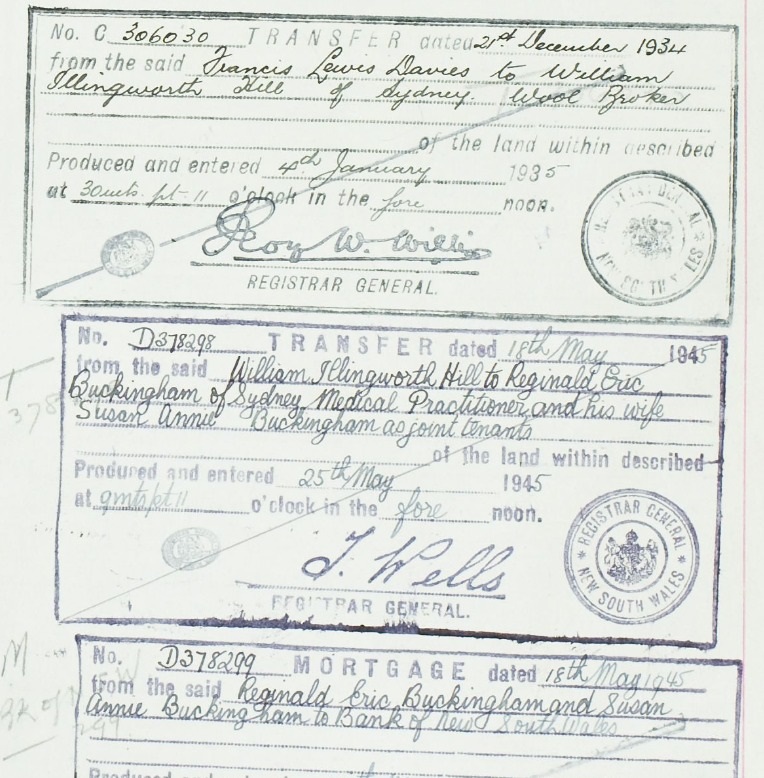 No. C 306030 TRANSFER dated 21st December 1934
from the said Francis Lewis Davies to William
Illingworth Hill of Sydney Wool Broker
of the land within described
Produced and entered 4th January 1935
at 30mts. pt 11 o'clock in the fore noon.
REGISTRAR GENERAL.
No. D378298 TRANSFER dated 18th May 1945
from the said William Illingworth Hill to Reginald Eric
Buckingham of Sydney Medical Practitioner and his wife
Susan Annie Buckingham as joint tenants
of the land within described
Produced and entered 25th May 1945
at 9mts pt 11 o'clock in the fore noon.
REGISTRAR GENERAL
NEW SOUTH WALES
J. Wells
REGISTRAR GENERAL.
No. D378299 MORTGAGE dated 18th May 1945
from the said Reginald Eric Buckingham and Susan
Annie Buckingham to Bank of New South Wales